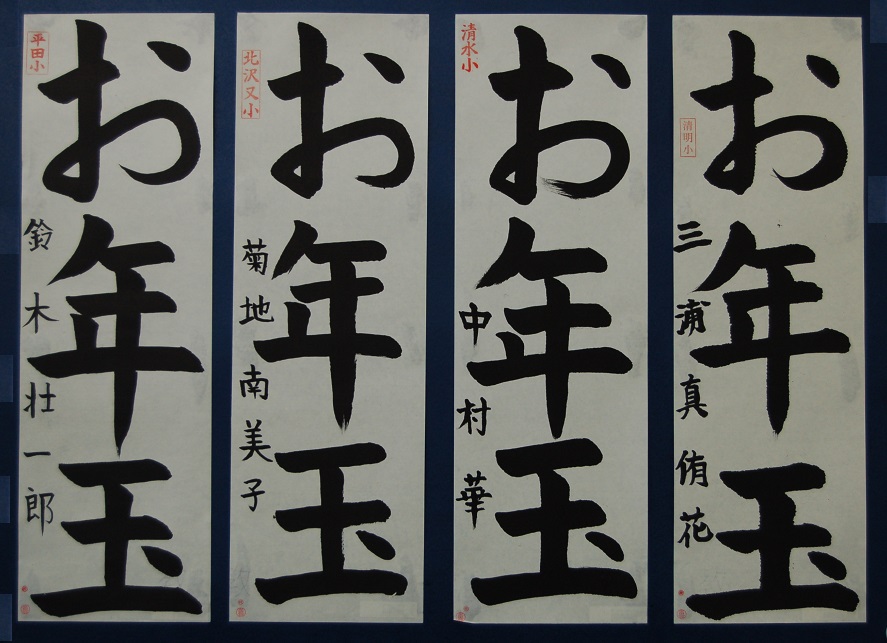 清明小
お年玉
三浦真侑花
清水小
お年玉
中村華
北沢又小
お年玉
菊地南美子
平田小
お年玉
鈴木壮一郎